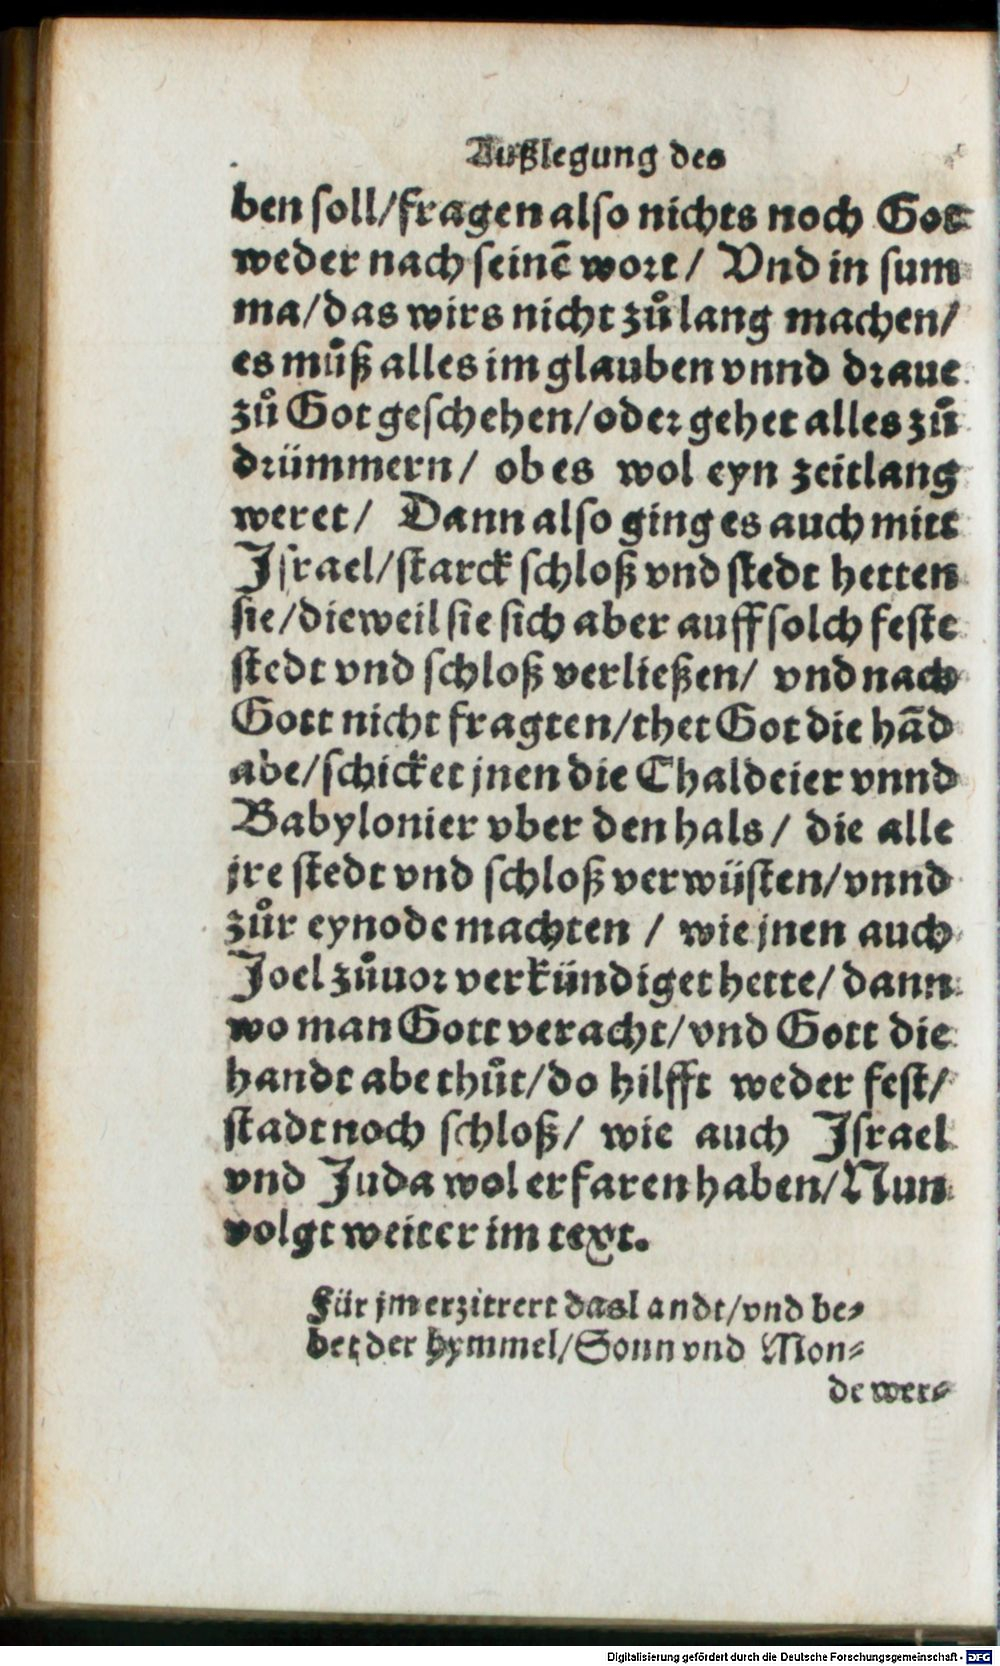 Außlegung des
ben soll/fragen also nichts noch Got
weder nach seinē wort/ Vnd in sum
ma/das wirs nicht zůlang machen/
es můß alles im glauben vnnd draue
zů Got geschehen/oder gehet alles zů
drümmern/ ob es wol eyn zeitlang
weret/ Dann also ging es auch mitt
Israel/starck schloß vnd stedt hetten
sie/dieweil sie sich aber auff solch feste
stedt vnd schloß verließen/ vnd nach
Gott nicht fragten/thet Got die hād
abe/schicket jnen die Chaldeier vnnd
Babylonier vber den hals/ die alle
jre stedt vnd schloß verwüsten/vnnd
zůr eynode machten / wie jnen auch
Joel zůuor verkündiget hette/dann
wo man Gott veracht/vnd Gott die
handt abe thůt/do hilfft weder fest/
stadt noch schloß/ wie auch Israel
vnd Juda wol erfaren haben/Nun
volgt weiter im text.
Für jm erzittert das landt/vnd be-
bet der hymmel/Sonn vnd Mon-
de wer-
Digitalisierung gefördert durch die Deutsche Forschungsgemeinschaft - DFG